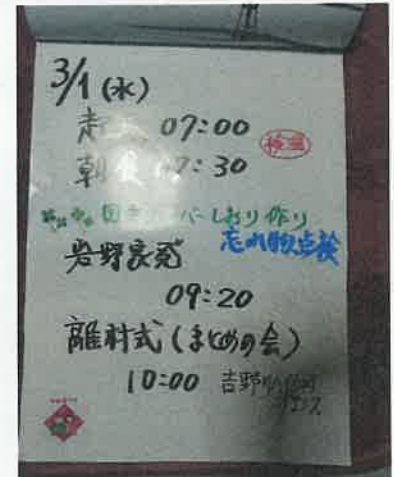 3/1(水)
起床 07:00 検温
朝食 07:30
しおり作り
忘れ物点検
岩野家発
09:20
離村式(まとめの会)
10:00 吉野